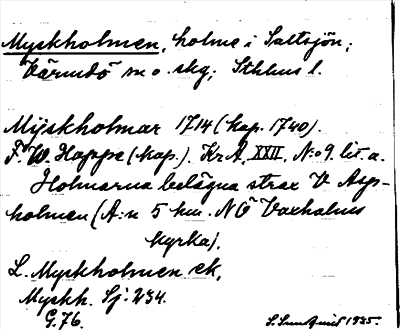 Myskholmen, holme i Saltsjön;
Värmdö m o. skg; Sthlms l.
Mÿskholmar 1714 (kop. 1740).
F. W. Hoppe (kop.). KrA, XXII, N:o 9. lit. a.
Holmarna belägna strax V Asp-
holmen (A:n 5 km. NÖ Vaxholms
kyrka).
L. Myskholmen ek,
Myskh. Sj: 234.
G.76.
S. Sundquist 1935.